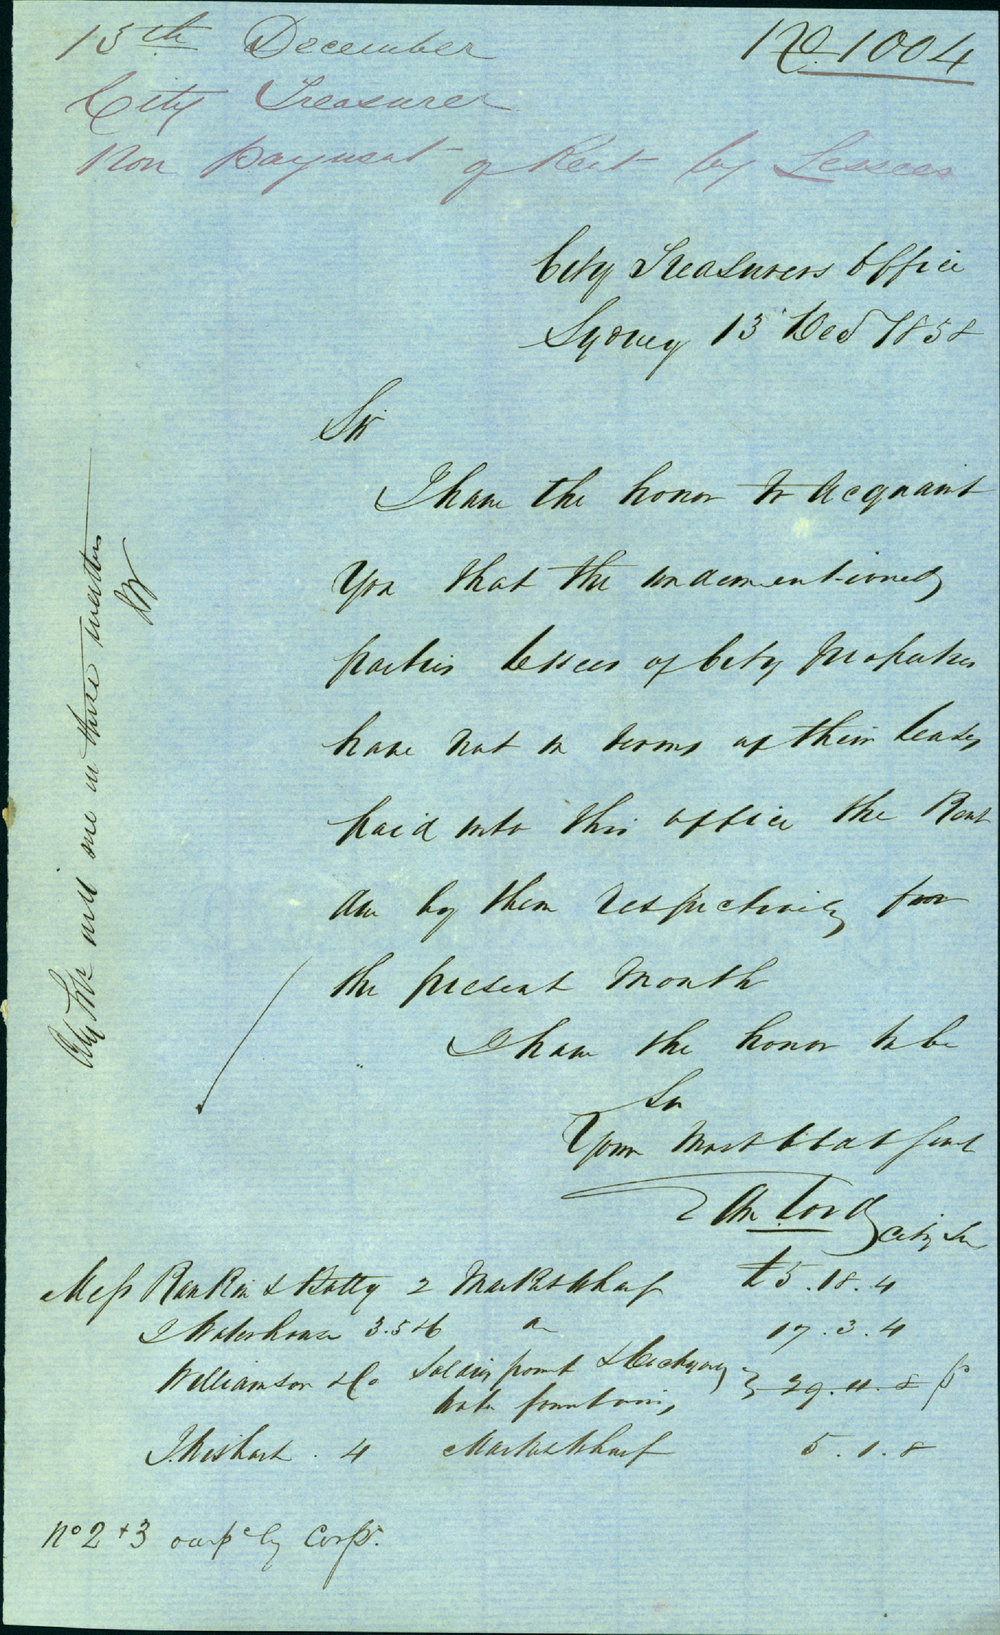 13th December
No. 1004
City Treasurer
Non payment of Rent by Lessees
City Treasurers Office
Sydney 13 Decr 1858
Sir
I have the honor to Acquaint
You that the undermentioned
parties Lessees of City Properties
have not in terms of their Leases
paid into this office the Rent
due by them respectively for
the present Month
I have the honor to be
Sir
Your Most Obdt Servt
City Tr
Messrs Rankin & 2 Market Wharf £5.18.4
J Waterhouse 3.5&6 do 17.3.4
Williamson & Co Soldiers point &
water fountains, 29.11.8
J. Wishart . 4 Market Wharf 5.1.8
No 2 & 3 by Corpn.
will see in these matters